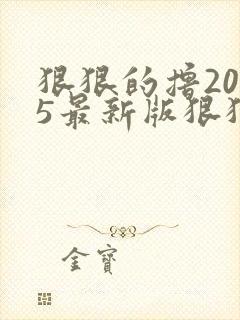 狠狠的撸20
5最新版狠狠
金寶